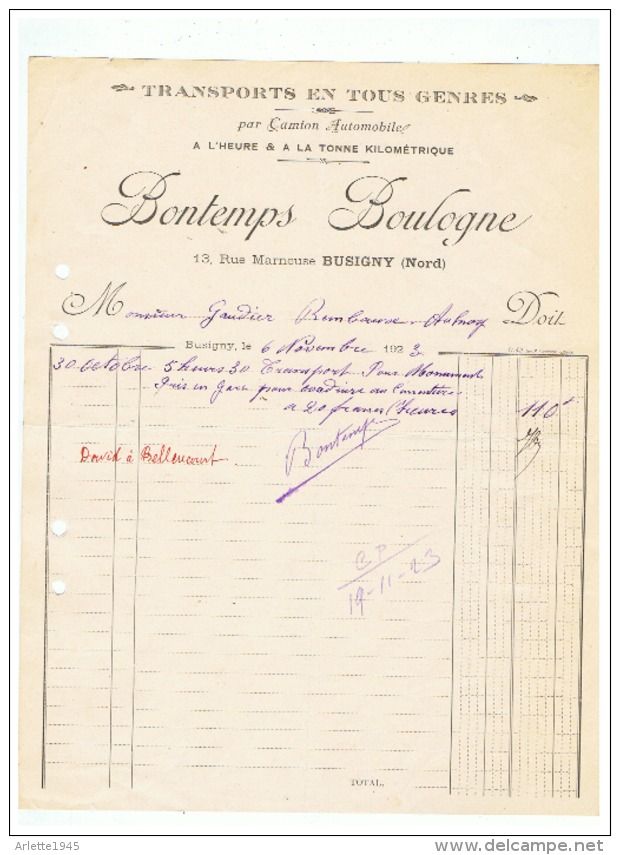 TRANSPORTS EN TOUS GENRES
par Camion Automobile
A L'HEURE & A LA TONNE KILOMÉTRIQUE
Bontemps Boulogne
13, Rue Marnouse BUSIGNY (Nord)
Monsieur Gaudier Rembaux Aulnoy Doit
Busigny, le 6 Novembre 1923
30 Octobre 5 heures 30 Transport Pour Monument
Pris en Gare pour conduire au Cimetière
à 20 francs l'heures 110f
Bontemps
David à Bellencourt
19-11-23
TOTAL.
Arlette1945
www.delcampe.net